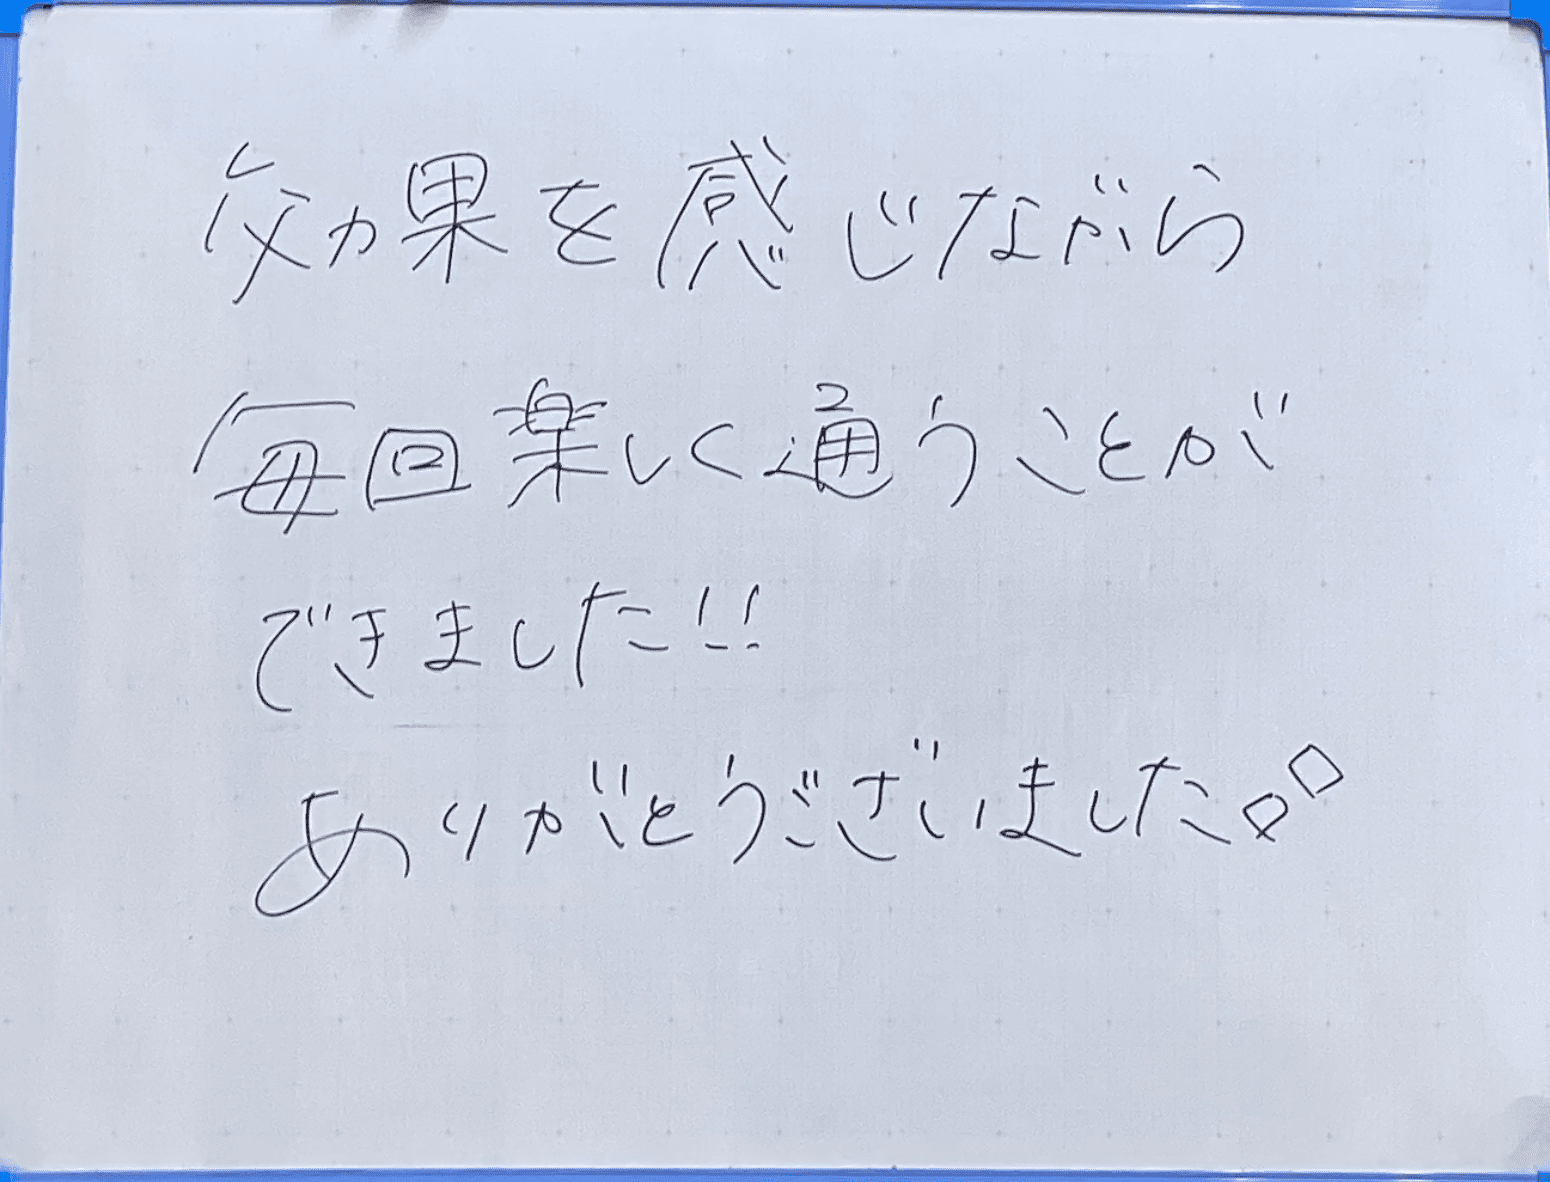 効果を感じながら
毎回楽しく通うことが
できました!!
ありがとうございました◇◇